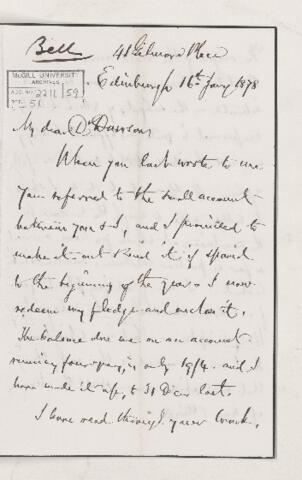 Bell
41 Gilmore Place
McGILL UNIVERSITY
ARCHIVES
ACC. NO. 2211/59
REF. 51
Edinburgh 16th Jany 1878
My dear Dr Dawson
When you last wrote to me
you referred to the small account
between you & I, and I promised to
make it out & send it if spared
to the beginning of the year. I now
redeem my pledge and enclose it.
The balance due me on an account
running four years, is only 19/4. and I
have made it up, to 31 Decr last.
I have read through your work,